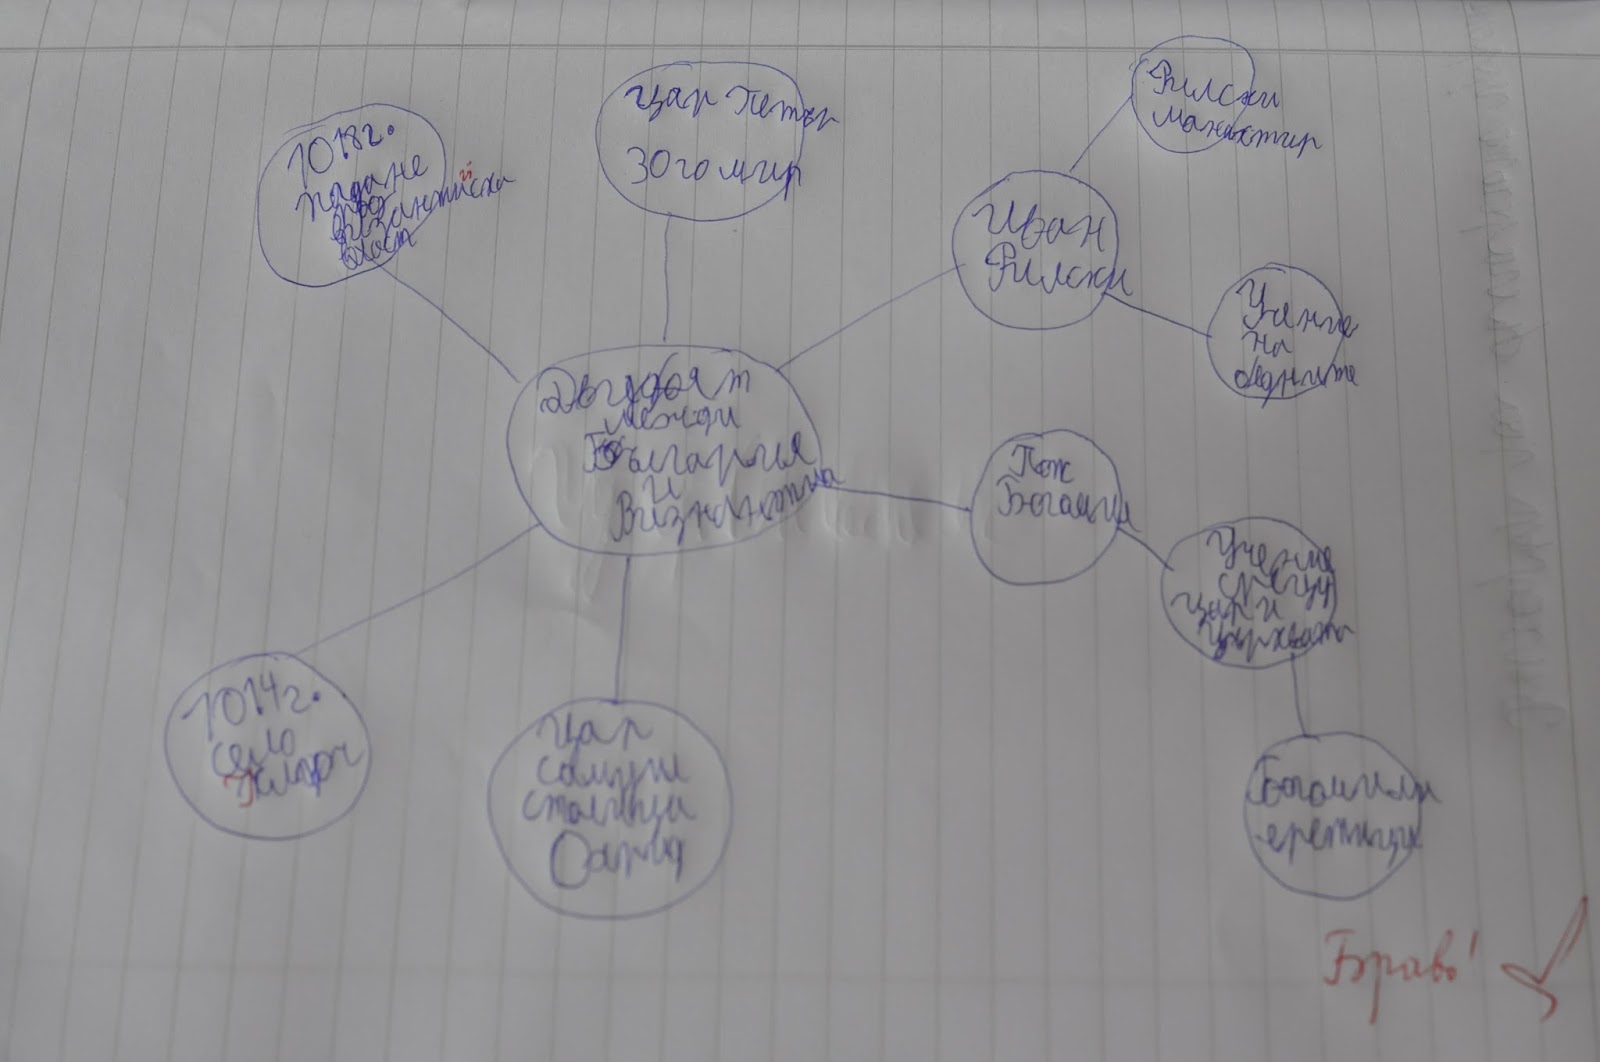 1018г.
падане
под
византийска
власт
цар Петър
30 години
Иван
Рилски
Рилски
манастир
Учение
на
бедните
Двубоят
между
България
и
Византия
Поп
Богомил
Учение
срещу
цар и
църквата
Богомили
-еретици
1014г.
село
Ключ
цар
самуил
столица
Охрид
Браво!